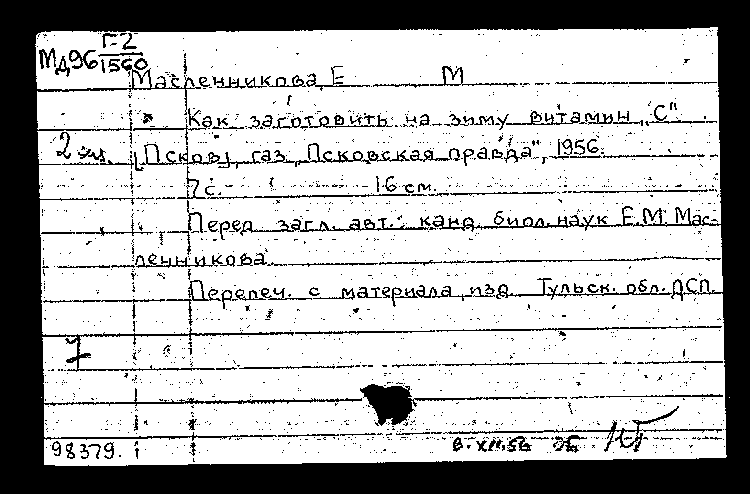 Мд96 Г-2
1560
Масленникова, Е М
Как заготовить на зиму витамин „С".
2 экз. [Псков], газ. „Псковская правда", 1956.
7 с. 16 см.
Перед загл. авт.: канд. биол. наук Е.М. Мас-
ленникова.
Перепеч. с материала, изд. Тульск. обл. ДСП.
7
98379. в. XII.56